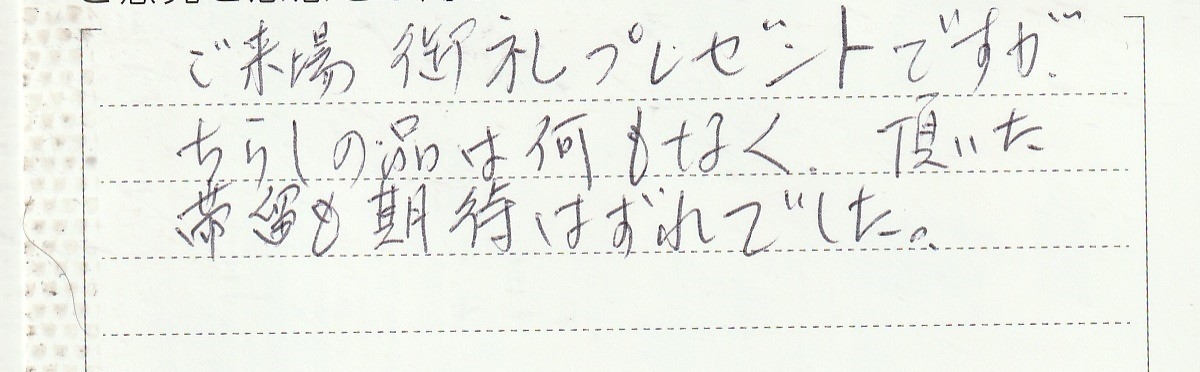 ご来場御礼プレゼントですが、
ちらしの品は何もなく、頂いた
帯留も期待はずれでした。